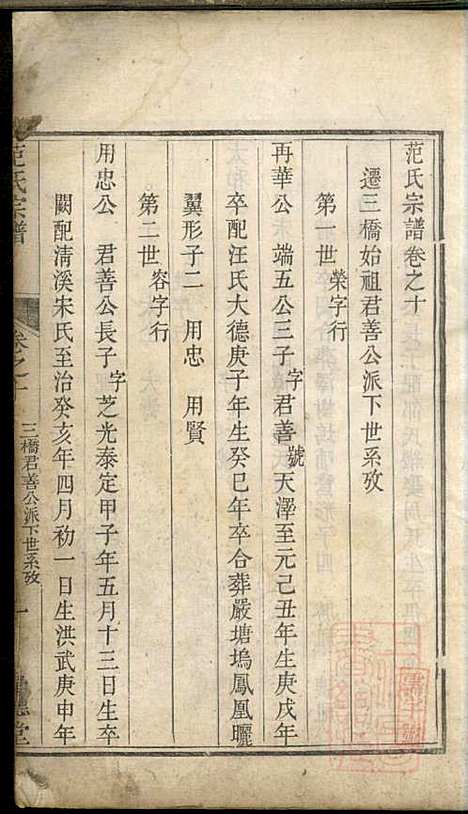 范氏宗譜卷之十
遷三橋始祖君善公派下世系攷
第一世 榮字行
再華公 端五公三子字君善號天澤至元己丑年生庚戌年
卒配汪氏大德庚子年生癸巳年卒合葬嚴塘塢鳳凰曬
翼形子二 用忠 用賢
第二世 容字行
用忠公 君善公長子字芝光泰定甲子年五月十三日生卒
闕配清溪宋氏至治癸亥年四月初一日生洪武庚申年
范氏宗譜 卷之十 三橋君善公派下世系攷 一 堂